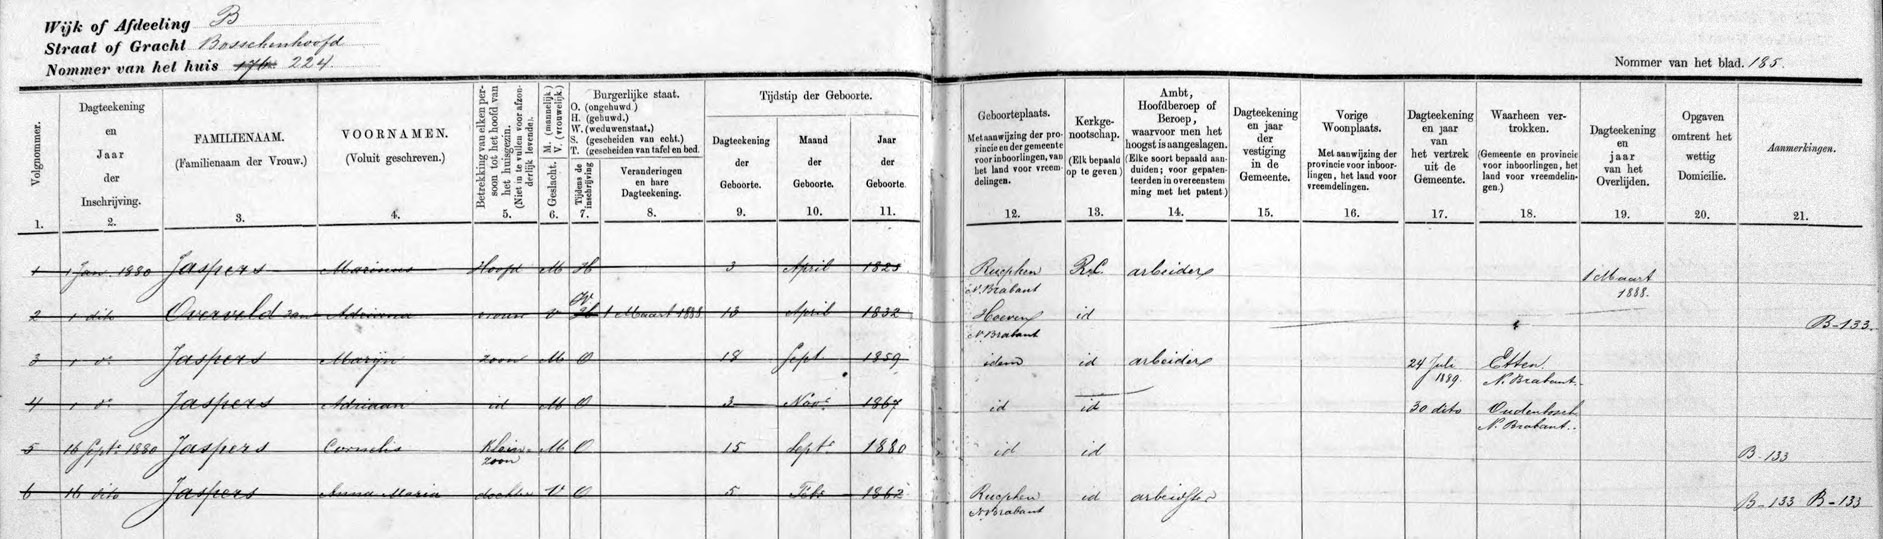 Wijk of Afdeeling B
Straat of Gracht Bosschenhoofd
Nommer van het huis 224
Nommer van het blad. 185.
Volgnommer.
1.
Dagteekening
en
Jaar
der
Inschrijving.
2.
FAMILIENAAM.
(Familienaam der Vrouw.)
3.
VOORNAMEN.
(Voluit geschreven.)
4.
Betrekking van elken per-
soon tot het hoofd van
het huisgezin.
(Niet in te vullen voor afzon-
derlijk levende).
5.
Geslacht. M. (mannelijk.)
V. (vrouwelijk.)
6.
Burgerlijke staat.
O. (ongehuwd.)
H. (gehuwd.)
W. (weduwenstaat.)
S. (gescheiden van echt.)
T. (gescheiden van tafel en bed.
Tijdens de
inschrijving
7.
Veranderingen
en hare
Dagteekening.
8.
Tijdstip der Geboorte.
Dagteekening
der
Geboorte.
9.
Maand
der
Geboorte.
10.
Jaar
der
Geboorte.
11.
Geboorteplaats.
Met aanwijzing der pro-
vincie en der gemeente
voor inboorlingen, van
het land voor vreem-
delingen.
12.
Kerkge-
nootschap.
(Elk bepaald
op te geven)
13.
Ambt,
Hoofdberoep of
Beroep,
waarvoor men het
hoogst is aangeslagen.
(Elke soort bepaald aan-
duiden; voor gepaten-
teerden in overeenstem
ming met het patent)
14.
Dagteekening
en jaar
der
vestiging
in de
Gemeente.
15.
Vorige
Woonplaats.
Met aanwijzing der
provincie voor inboor-
lingen, het land voor
vreemdelingen.
16.
Dagteekening
en jaar
van
het vertrek
uit de
Gemeente.
17.
Waarheen ver-
trokken.
(Gemeente en provincie
voor inboorlingen, het
land voor vreemdelin-
gen.)
18.
Dagteekening
en
jaar
van het
Overlijden.
19.
Opgaven
omtrent het
wettig
Domicilie.
20.
Aanmerkingen.
21.
1 1 Jan. 1880 Jaspers Marinus Hoofd M H 3 April 1823 Rucphen R.C. arbeider 1 Maart
N. Brabant 1888.
2 1 dito Overveld van Adriana vrouw V H W 1 Maart 1888 13 April 1832 Hoeven id B-133.
N. Brabant
3 1 do Jaspers Marijn zoon M O 18 Sept 1859 idem id arbeider 24 Juli Etten
1889. N. Brabant.
4 1 do Jaspers Adriaan id M O 3 Nov. 1867 id id 30 dito Oudenbosch
N. Brabant.
5 16 Sept. 1880 Jaspers Cornelis Klein- M O 15 Sept. 1880 id id B-133
zoon
6 16 dito Jaspers Anna Maria dochter V O 5 Feb. 1862 Rucphen id arbeidster B-133 B-133
N. Brabant